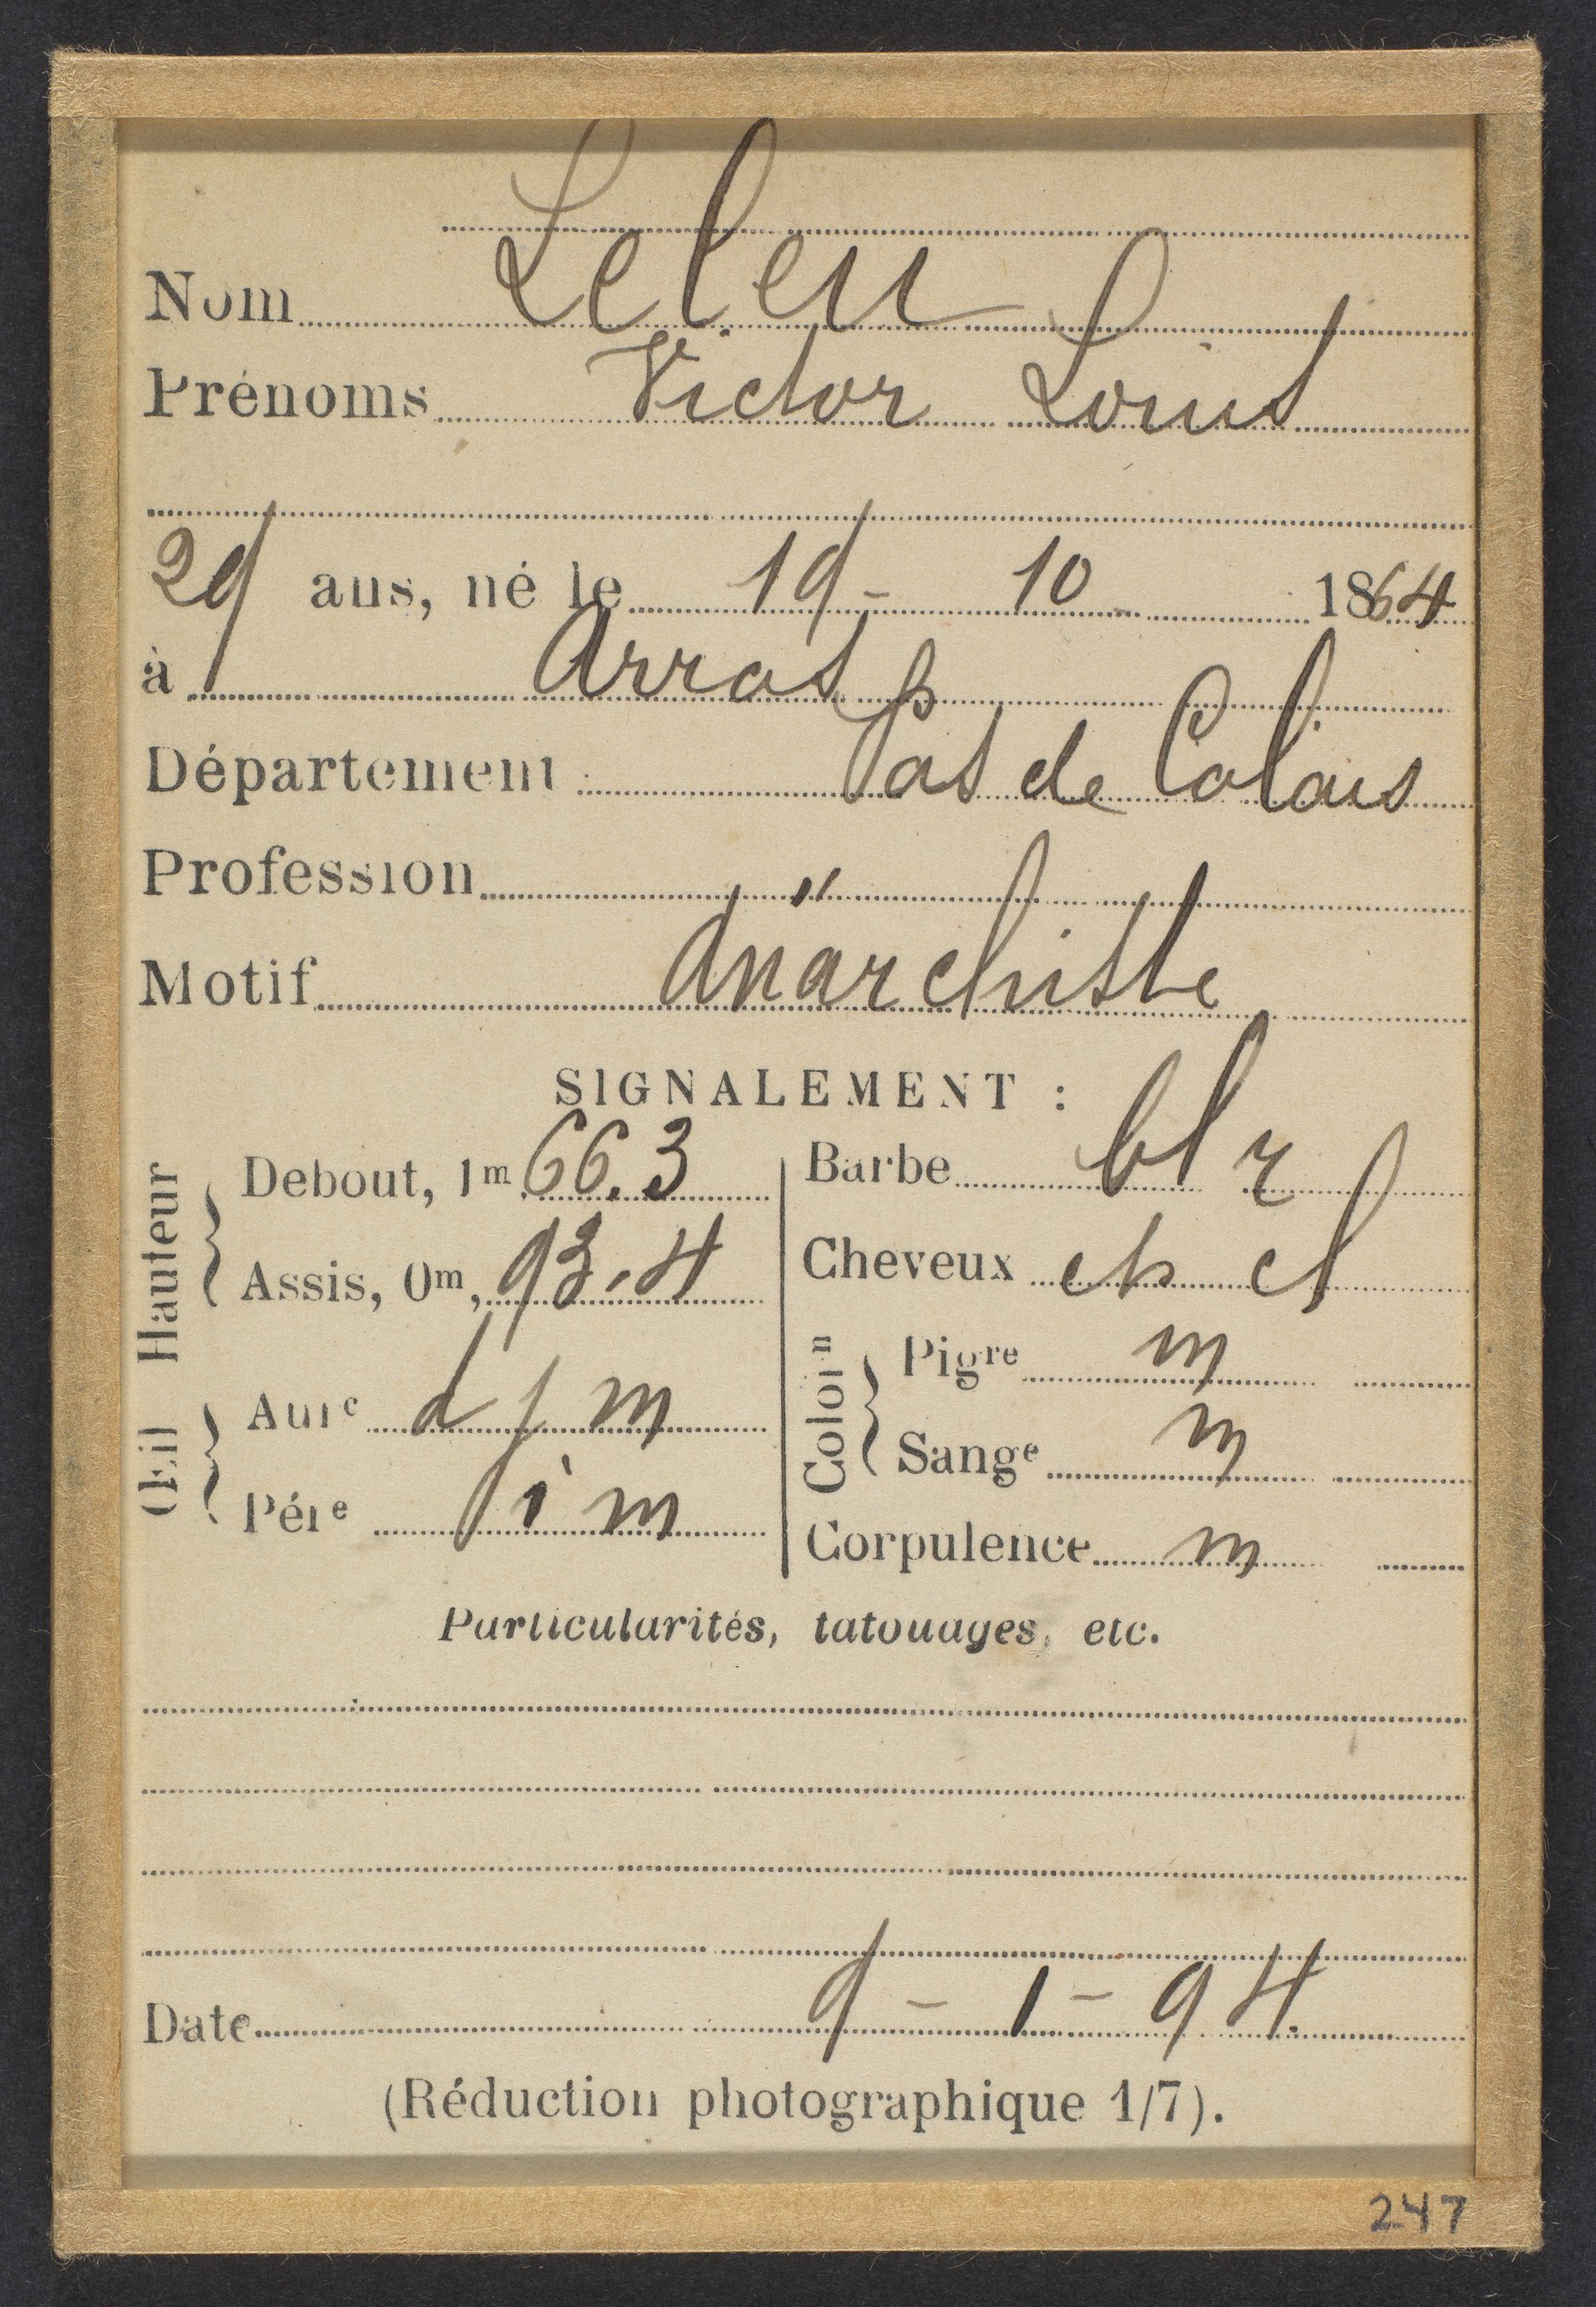 Nom Leleu
Prénoms Victor Louis
29 ans, né le 19 - 10 1864
à Arras
Département Pas de Calais
Profession "
Motif Anarchiste
SIGNALEMENT :
Hauteur
Debout, 1m, 66.3
Assis, 0m, 93.4
Œil
Aure d j m
Pére j i m
Barbe bl r
Cheveux ch cl
Coloron
Pigre m
Sange m
Corpulence m
Particularités, tatouages, etc.
Date 9 - 1 - 94.
(Réduction photographique 1/7).
247